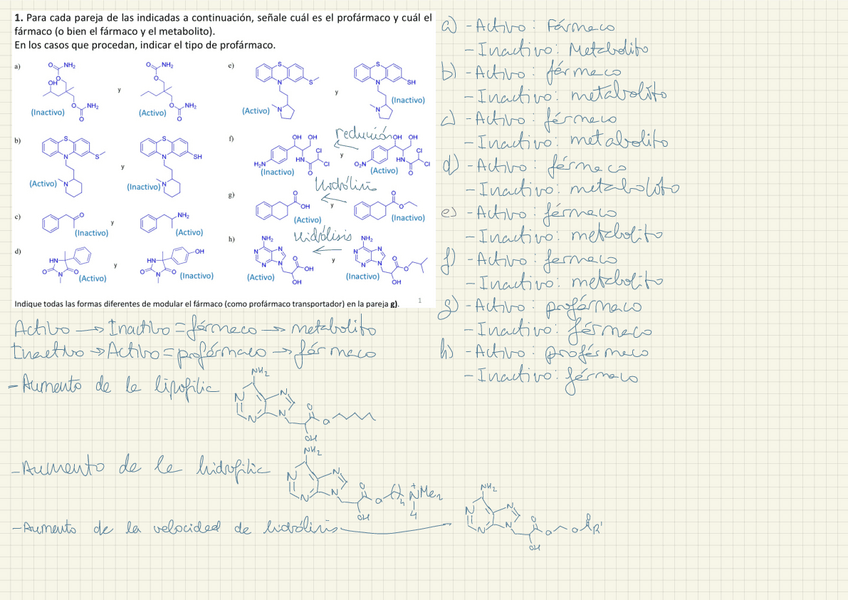 1. Para cada pareja de las indicadas a continuación, señale cuál es el profármaco y cuál el
fármaco (o bien el fármaco y el metabolito).
En los casos que procedan, indicar el tipo de profármaco.
a)
(Inactivo)
y
(Activo)
b)
(Activo)
y
(Inactivo)
c)
(Inactivo)
y
(Activo)
d)
(Activo)
y
(Inactivo)
e)
(Activo)
y
(Inactivo)
f)
reducción
(Inactivo)
y
(Activo)
g)
Hidrólisis
(Activo)
y
(Inactivo)
h)
Hidrólisis
(Activo)
y
(Inactivo)
Indique todas las formas diferentes de modular el fármaco (como profármaco transportador) en la pareja g).
1
a) - Activo: Fármaco
- Inactivo: Metabolito
b) - Activo: fármaco
- Inactivo: metabolito
c) - Activo: fármaco
- Inactivo: metabolito
d) - Activo: fármaco
- Inactivo: metabolito
e) - Activo: fármaco
- Inactivo: metabolito
f) - Activo: fármaco
- Inactivo: metabolito
g) - Activo: profármaco
- Inactivo: fármaco
h) - Activo: profármaco
- Inactivo: fármaco
Activo → Inactivo = fármaco → metabolito
Inactivo → Activo = profármaco → fármaco
- Aumento de la lipofilic
- Aumento de la hidrofilic
- Aumento de la velocidad de hidrólisis